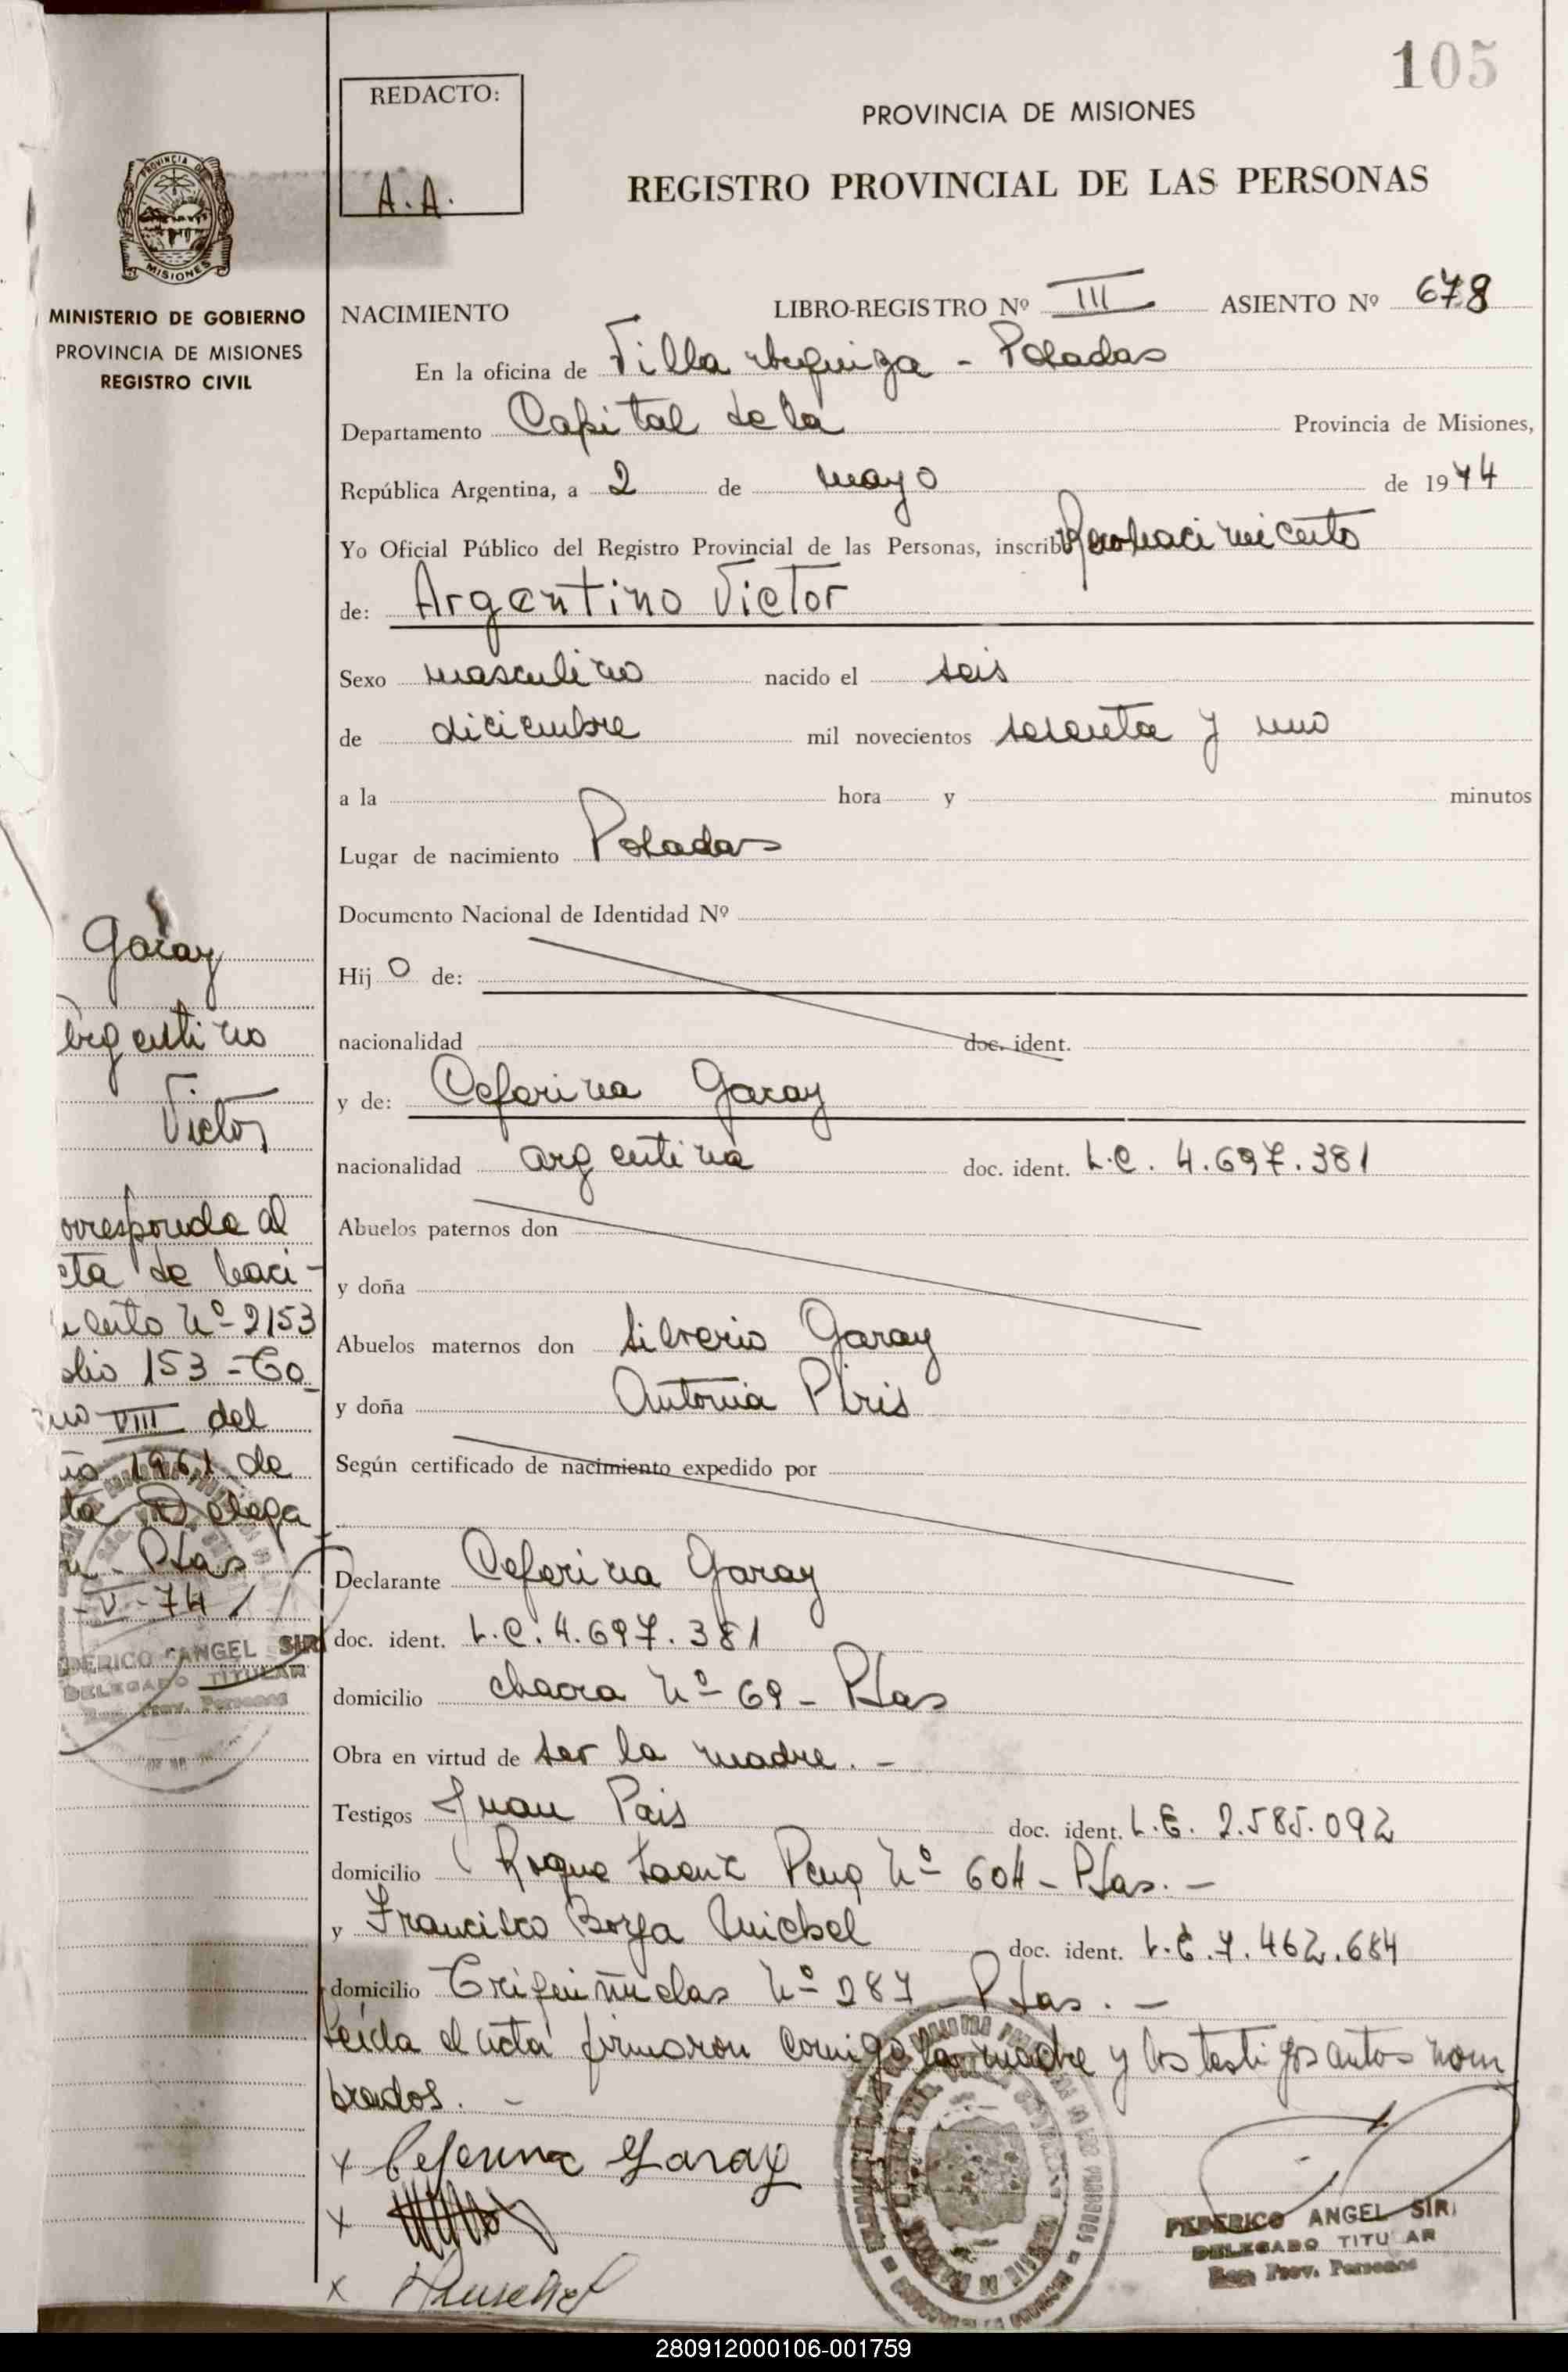 105
REDACTO:
A.A.
PROVINCIA DE MISIONES
REGISTRO PROVINCIAL DE LAS PERSONAS
PROVINCIA DE
MISIONES
MINISTERIO DE GOBIERNO
PROVINCIA DE MISIONES
REGISTRO CIVIL
NACIMIENTO LIBRO-REGISTRO Nº III ASIENTO Nº 678
En la oficina de Villa Urquiza - Posadas
Departamento Capital de la Provincia de Misiones,
República Argentina, a 2 de mayo de 1974
Yo Oficial Público del Registro Provincial de las Personas, inscribo
de: Argentino Victor
Sexo masculino nacido el seis
de diciembre mil novecientos sesenta y uno
a la hora y minutos
Lugar de nacimiento Posadas
Documento Nacional de Identidad Nº
Hij o de:
nacionalidad doc. ident.
y de: Ceferina Garay
nacionalidad argentina doc. ident. L.C. 4.697.381
Abuelos paternos don
y doña
Abuelos maternos don Silverio Garay
y doña Antonia Piris
Según certificado de nacimiento expedido por
Declarante Ceferina Garay
doc. ident. L.C. 4.697.381
domicilio chacra Nº 69 - Pdas
Obra en virtud de ser la madre. -
Testigos Juan Pais doc. ident. L.E. 2.585.092
domicilio Roque Saenz Peña Nº 604 - Pdas. -
y Francisco Borja doc. ident. L.E. 7.462.684
domicilio Nº 287 Pdas. -
Leida el acta firmaron conmigo la madre y los testigos antes nom
brados. -
x Ceferina Garay
x
x
FEDERICO ANGEL SIRI
DELEGADO TITULAR
Reg. Prov. Personas
Garay
Argentino
Victor
orresponde al
cta de naci-
iento Nº 2153
olio 153 - To
mo VIII del
ño 1961 de
ta Delega
n - Pdas
-V-74
DERICO ANGEL SIRI
DELEGADO TITULAR
Reg. Prov. Personas
280912000106-001759